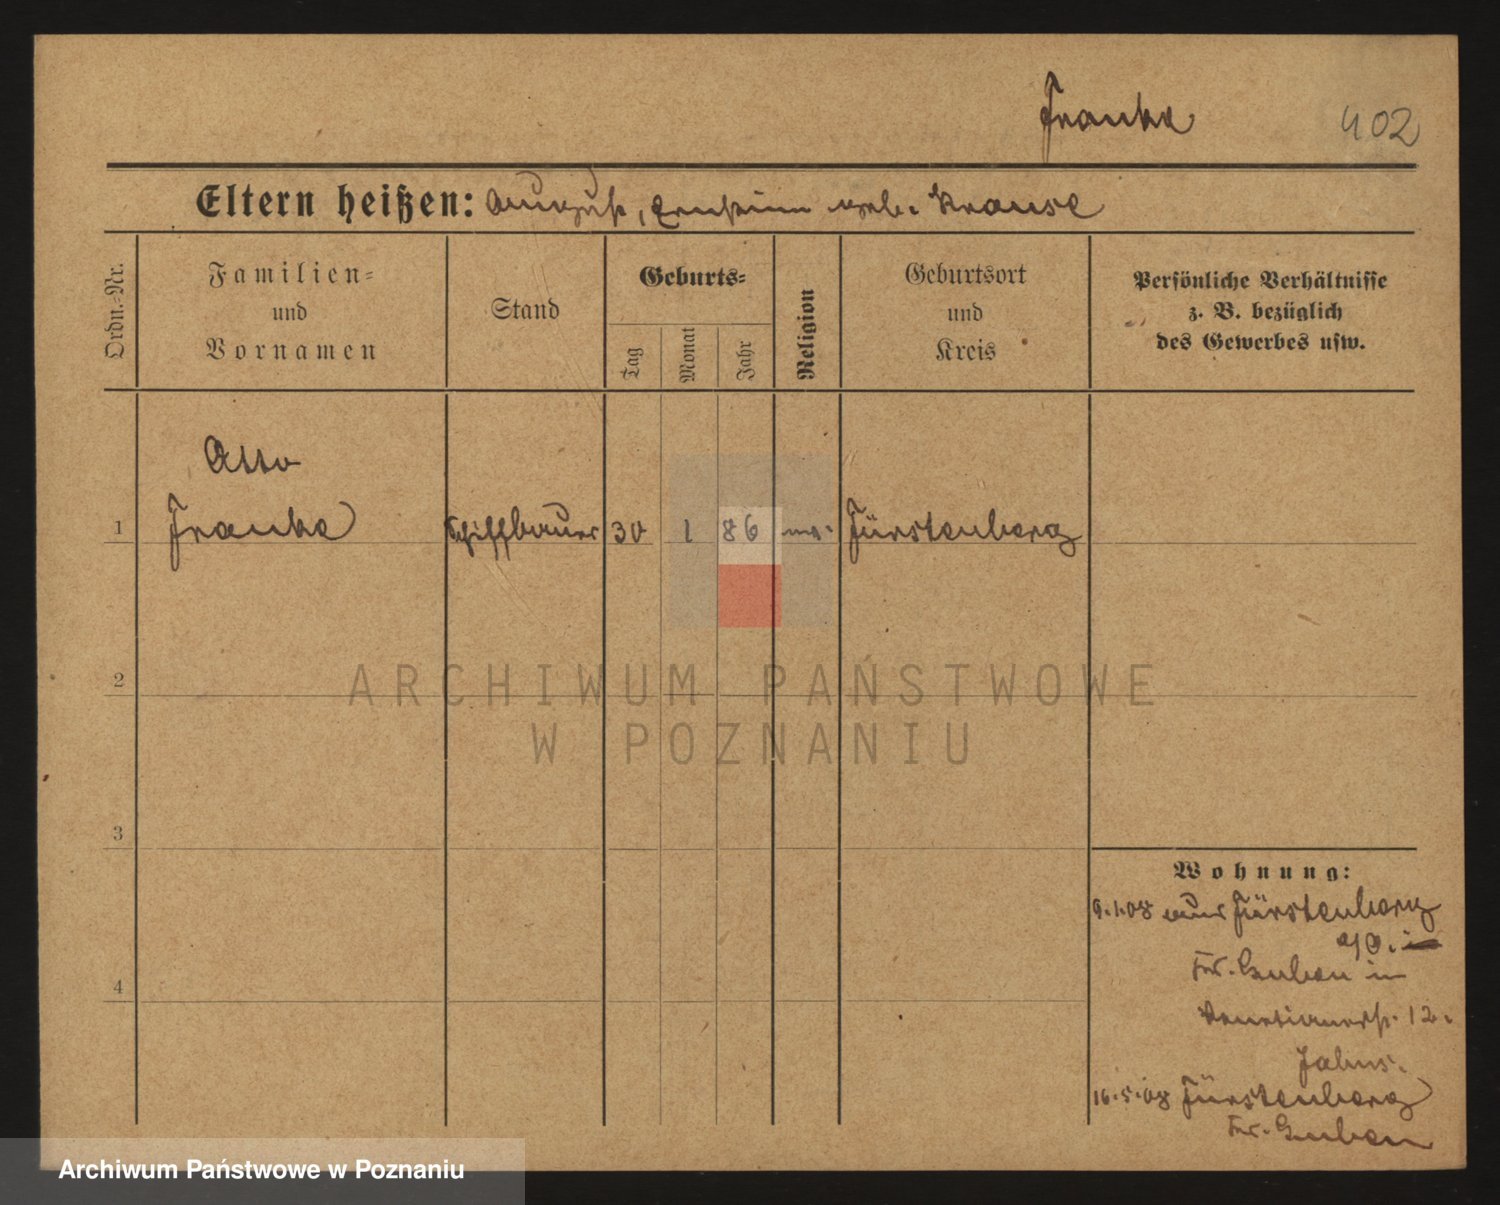 Franke 402
Eltern heißen: August, Ernstine geb. Krause
Ordn.-Nr.
Familien-
und
Vornamen
Stand
Geburts-
Tag
Monat
Jahr
Religion
Geburtsort
und
Kreis
Persönliche Verhältnisse
z. B. bezüglich
des Gewerbes usw.
Otto
1 Franke Schiffbauer 30 1 86 Fürstenberg
2
3
4
Wohnung:
9.1.08 aus Fürstenberg
a/O.
Kr. Guben in
Venetianerstr. 12.
Jahns.
16.5.08 Fürstenberg
Kr. Guben
ARCHIWUM PAŃSTWOWE
W POZNANIU
Archiwum Państwowe w Poznaniu